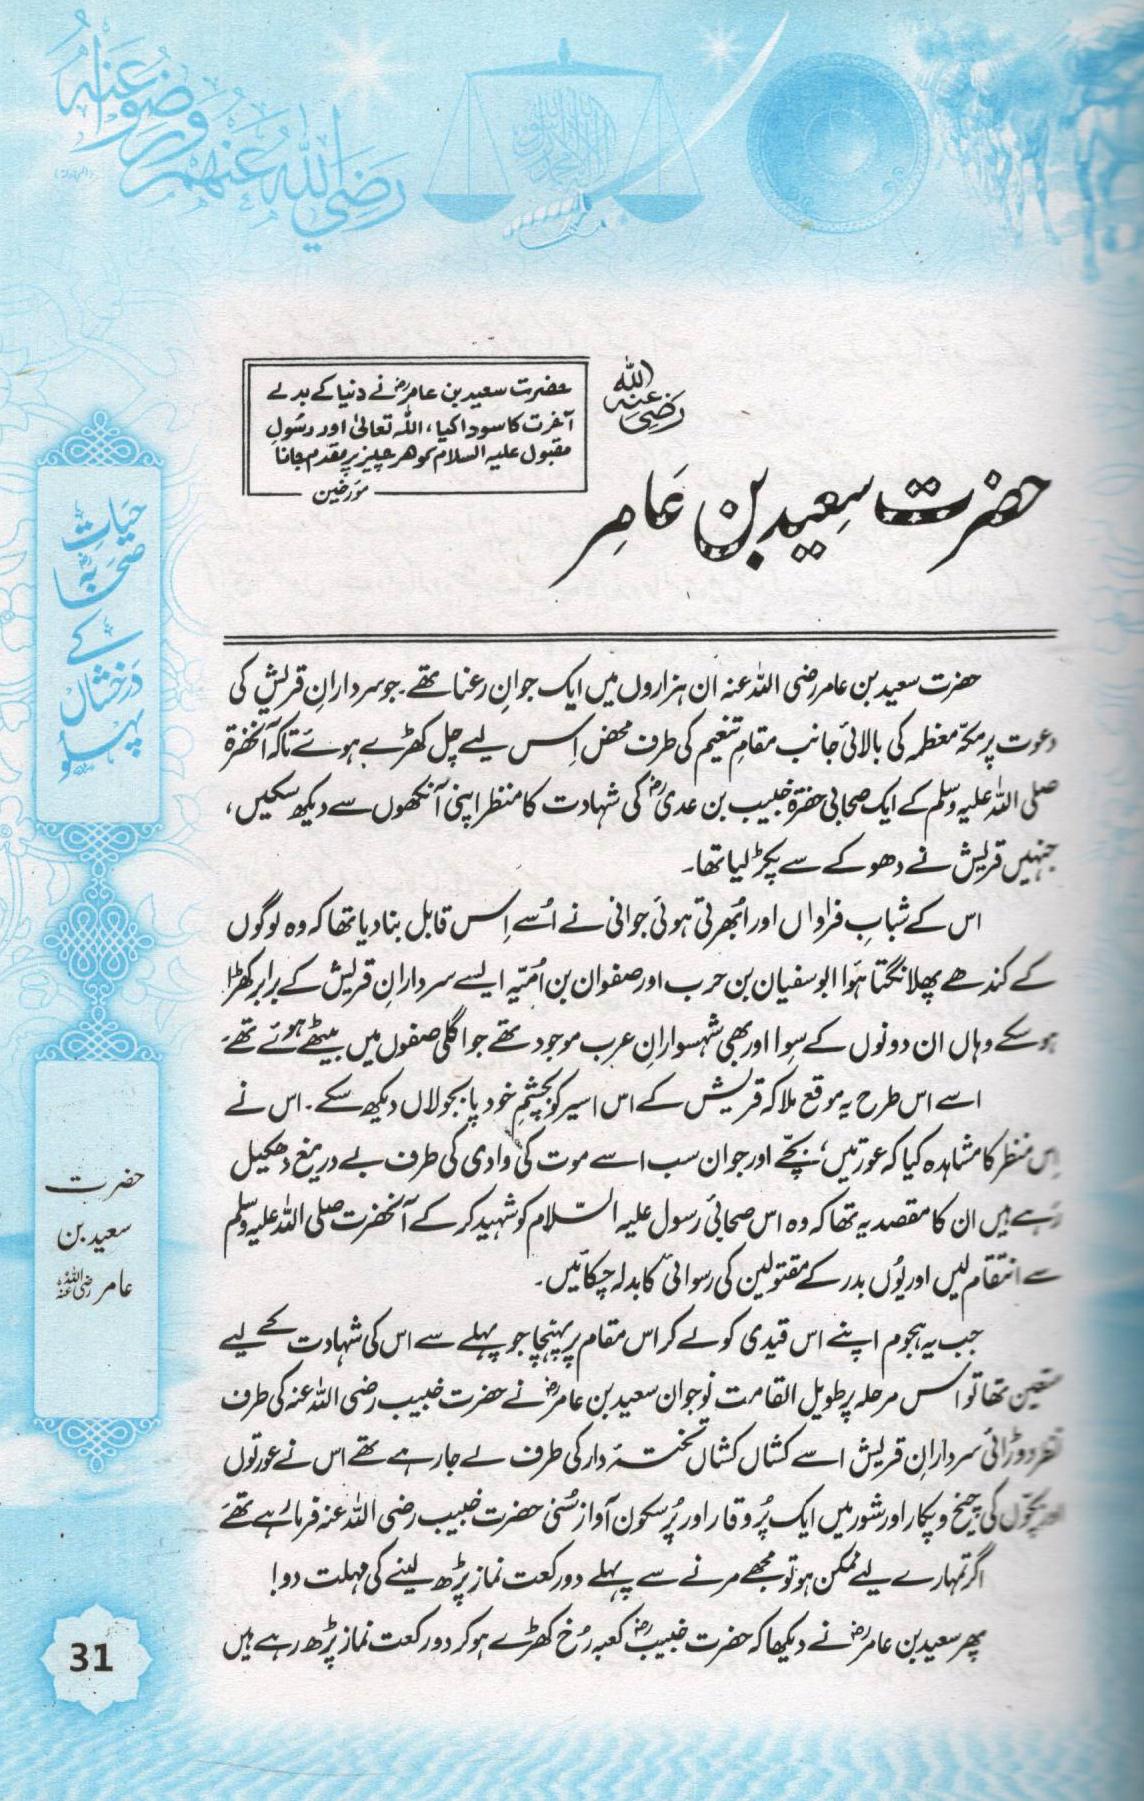 رضی اللہ عنہم ورضو عنہ
حضرت سعید بن عامرؓ نے دنیا کے بدلے
آخرت کا سودا کیا، اللہ تعالیٰ اور رسُولِ
مقبول علیہ السلام کو ھر چیز پر مقدم جانا
مؤرخین
رضی اللہ عنہ
حضرت سعید بن عامر
حضرت سعید بن عامر رضی اللہ عنہ ان ہزاروں میں ایک جوانِ رعنا تھے۔ جو سردارانِ قریش کی
دعوت پر مکہّ معظمہ کی بالائی جانب مقامِ تنعیم کی طرف محض اِس لیے چل کھڑے ہوئے تاکہ آنحضرۃ
صلی اللہ علیہ وسلم کے ایک صحابی حضرۃ خبیب بن عدیؓ کی شہادت کا منظر اپنی آنکھوں سے دیکھ سکیں،
جنہیں قریش نے دھوکے سے پکڑ لیا تھا۔
اس کے شبابِ فراواں اور اُبھرتی ہوئی جوانی نے اُسے اِس قابل بنا دیا تھا کہ وہ لوگوں
کے کندھے پھلانگتا ہوا ابو سفیان بن حرب اور صفوان بن اُمیّہ ایسے سردارانِ قریش کے برابر کھڑا
ہو سکے وہاں ان دونوں کے سِوا اور بھی شہسوارانِ عرب موجود تھے جو اگلی صفوں میں بیٹھے ہوئے تھے۔
اسے اس طرح یہ موقع ملا کہ قریش کے اس اسیر کو بچشمِ خود پابجولاں دیکھ سکے۔ اس نے
اِس منظر کا مشاہدہ کیا کہ عورتیں، بچّے اور جوان سب اسے موت کی وادی کی طرف بے دریغ دھکیل
رہے ہیں ان کا مقصد یہ تھا کہ وہ اس صحابیٔ رسول علیہ السّلام کو شہید کر کے آنحضرت صلی اللہ علیہ وسلم
سے انتقام لیں اور یُوں بدر کے مقتولین کی رسوائی کا بدلہ چکائیں۔
جب یہ ہجوم اپنے اس قیدی کو لے کر اس مقام پر پہنچا جو پہلے سے اس کی شہادت کے لیے
متعین تھا تو اس مرحلہ پر طویل القامت نوجوان سعید بن عامرؓ نے حضرت خبیب رضی اللہ عنہ کی طرف
نظر دوڑائی سردارانِ قریش اسے کشاں کشاں تختۂ دار کی طرف لے جا رہے تھے اس نے عورتوں
اور بچّوں کی چیخ و پکار اور شور میں ایک پُر وقار اور پُر سکون آواز سُنی حضرت خبیب رضی اللہ عنہ فرما رہے تھے
اگر تمہارے لیے ممکن ہو تو مجھے مرنے سے پہلے دو رکعت نماز پڑھ لینے کی مہلت دو!
پھر سعید بن عامرؓ نے دیکھا کہ حضرت خبیبؓ کعبہ رُخ کھڑے ہو کر دو رکعت نماز پڑھ رہے ہیں
حیاتِ
صحابہؓ
کے
درخشاں
پہلُو
حضرت
سعید بن
عامر رضی اللہ عنہ
31